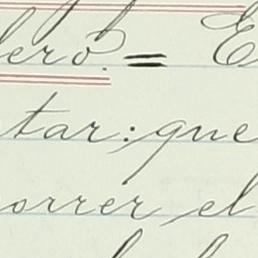 lero. = E
tar: que
orrer el